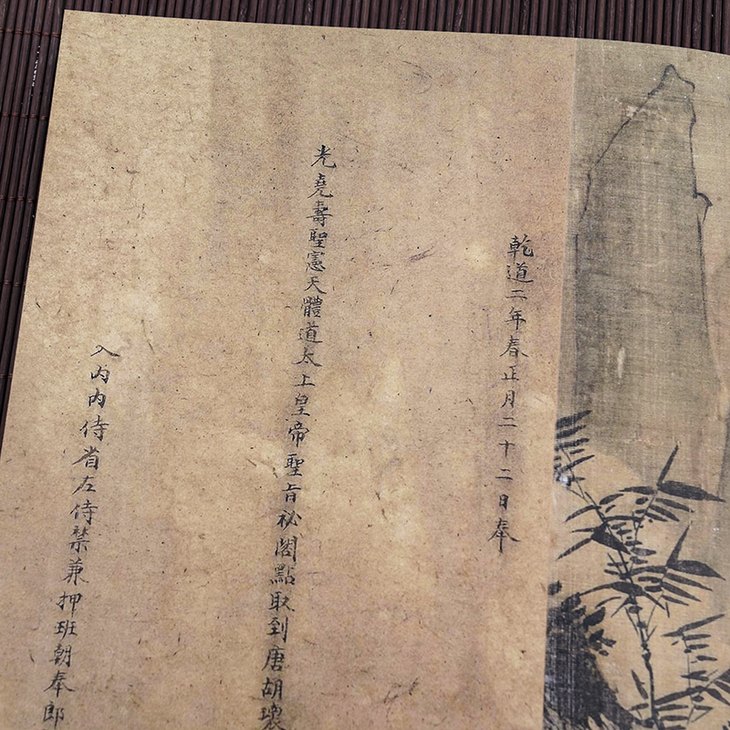 乾道二年春正月二十二日奉
光堯壽聖憲天體道太上皇帝聖旨祕閣點取到唐胡瓌
入內內侍省左侍禁兼押班朝奉郎